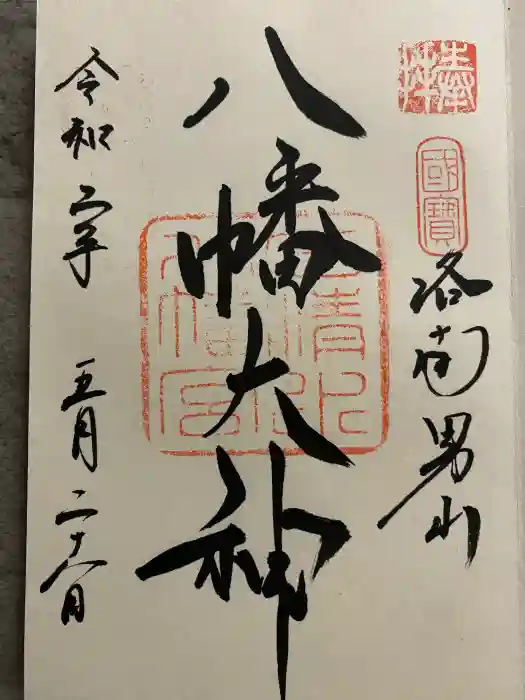 奉拝
國寶
洛南男山
八幡大神
石清水
八幡宮
令和 年 五月 二十八日